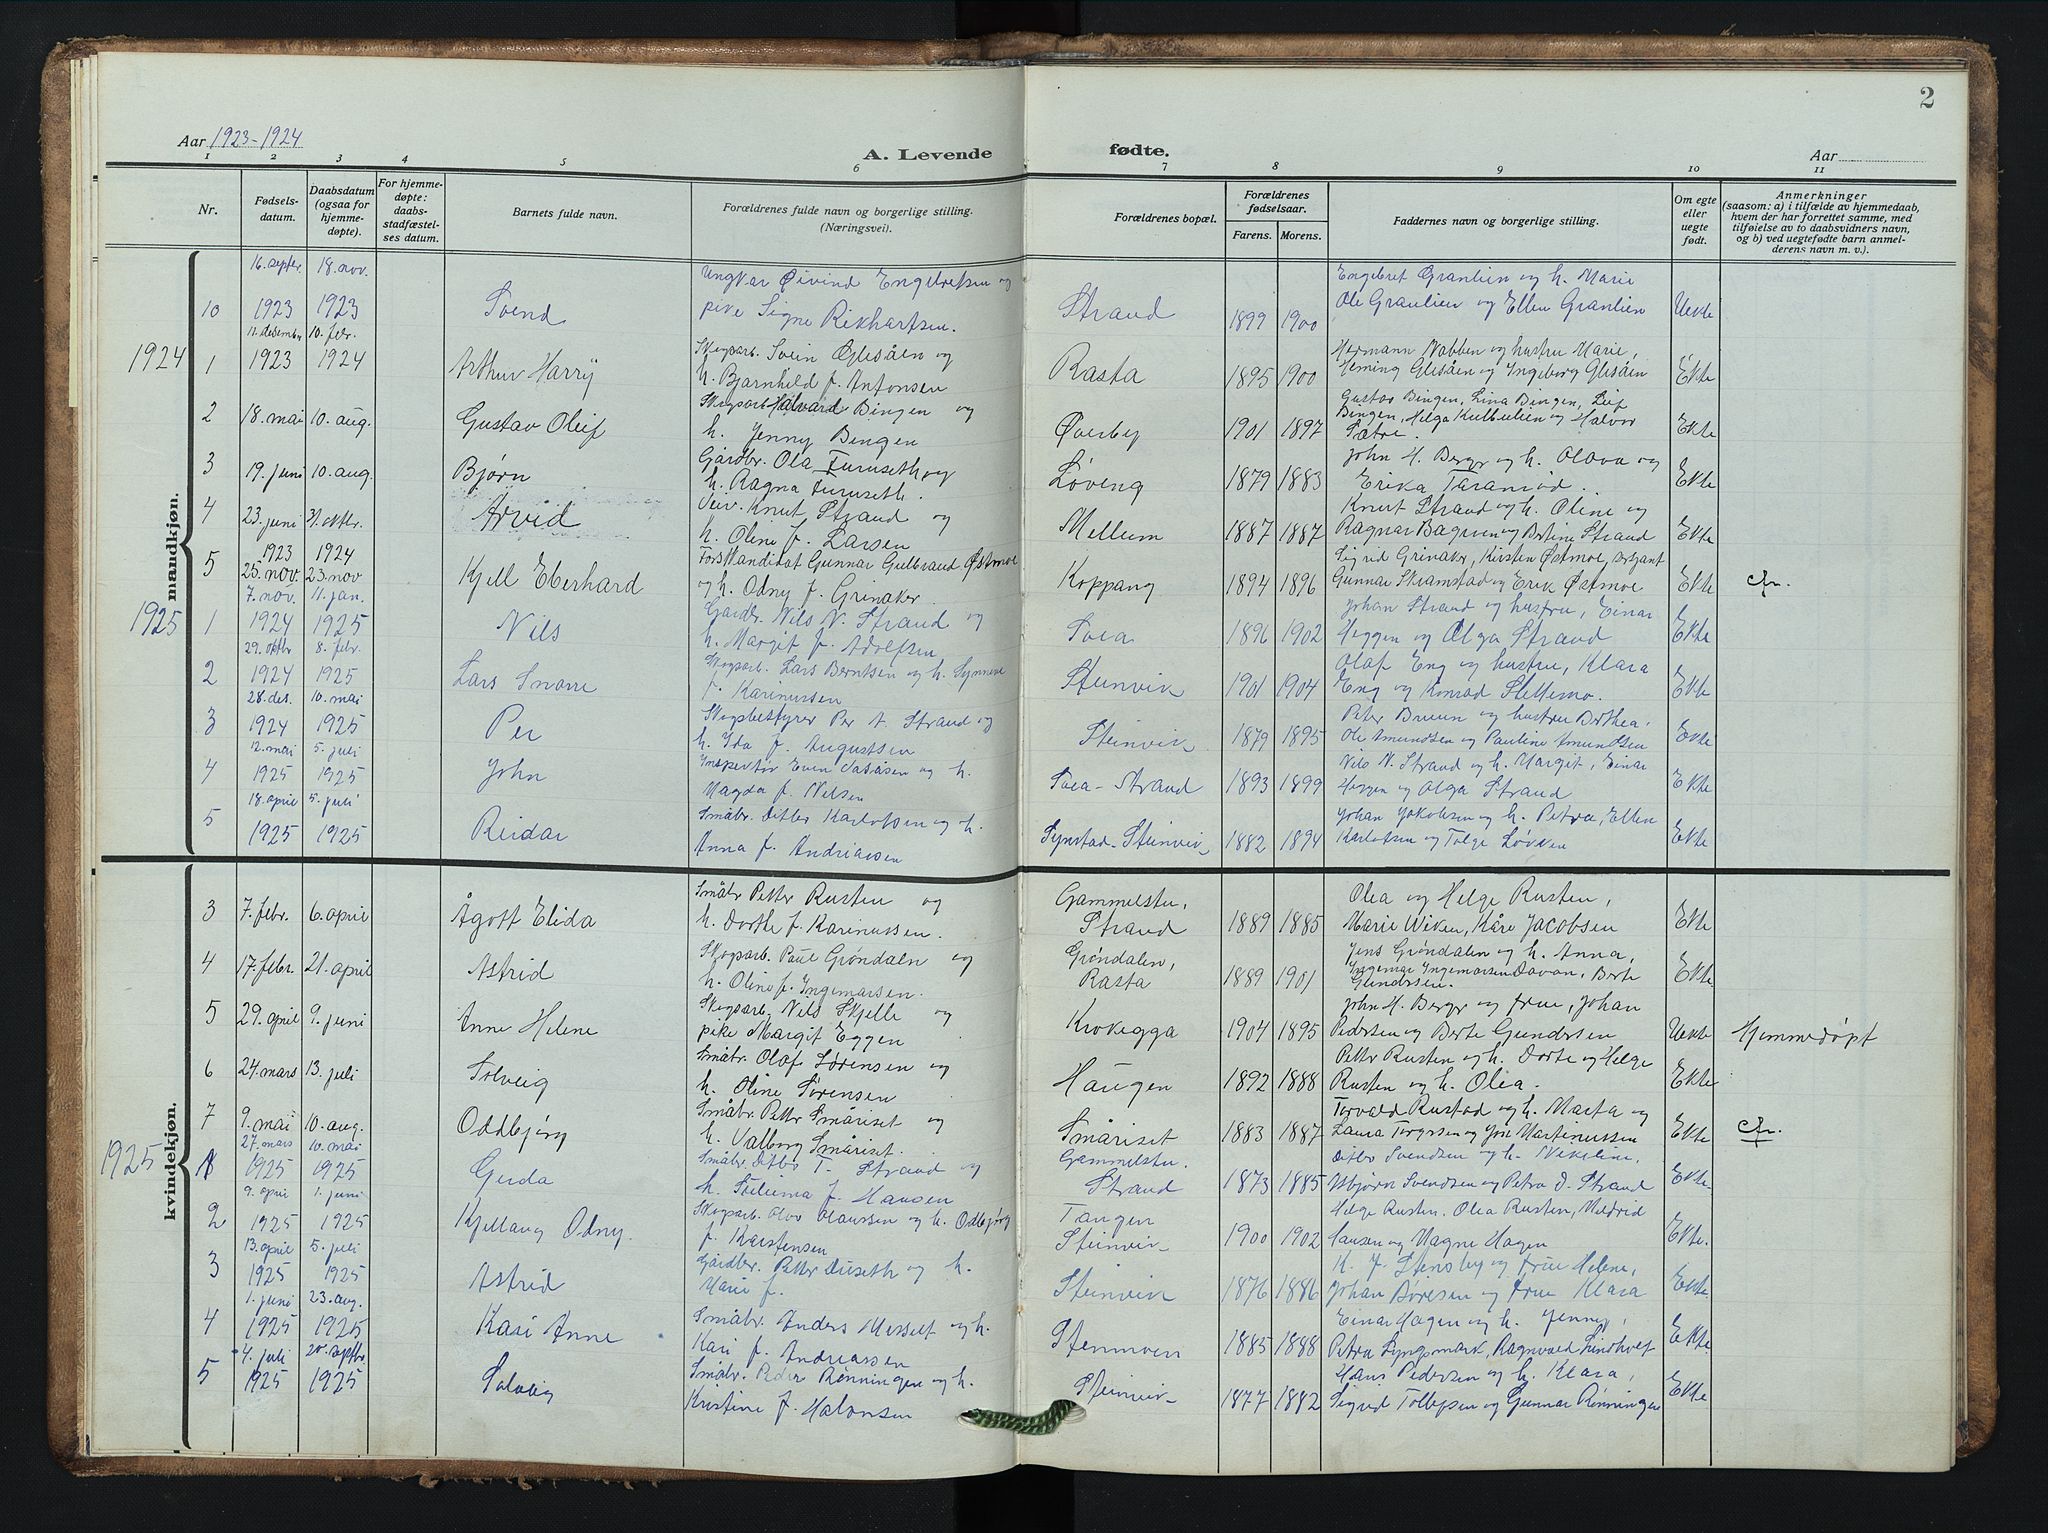 2
Aar 1923-1924
A. Levende fødte.
Aar
1 2 3 4 5 6 7 8 9 10 11
Nr. | Fødsels-datum. | Daabsdatum (ogsaa for hjemme-døpte). | For hjemme-døpte: daabs-stadfæstel-ses datum. | Barnets fulde navn. | Forældrenes fulde navn og borgerlige stilling. (Næringsvei). | Forældrenes bopæl. | Forældrenes fødselsaar. Farens. Morens. | Faddernes navn og borgerlige stilling. | Om egte eller uegte født. | Anmerkninger (saasom: a) i tilfælde av hjemmedaab, hvem der har forrettet samme, med tilføielse av to daabsvidners navn, og b) ved uegtefødte barn anmel-derens navn m. v.).
mandkjøn.
10 16. septbr. 1923 18. nov. 1923 Svend Ungkar Øivind Engebretsen og pike Signe Rikhartsen. Strand 1899 1900 Engebret Granlien og h. Marie Ole Granlien og Ellen Granlien Uekte
1924
1 11. desember 1923 10. febr. 1924 Arthur Harry Skogarb. Svein Glesåen og h. Bjarnhild f. Antonsen Rasta 1895 1900 Hermann Nabben og hustru Marie, Heming Glesåen og Ingeborg Glesåen Ekte
2 18. mai 10. aug. Gustav Oleif Skogarb. Halvard Bingen og h. Jenny Bingen Øverby 1901 1897 Gustav Bingen, Lina Bingen, Leif Bingen, Helga og Halvor Sætre. Ekte
3 19. juni 10. aug. Bjørn Gårdbr. Ola Furuseth og h. Ragna Furuseth. Løveng 1879 1883 John H. Bergr og h. Olava og Erika Taraniod. Ekte
4 23. juni 31. oktbr. Arvid Veiv. Knut Strand og h. Oline f. Larsen Mellem 1887 1887 Knut Strand og h. Oline og Ragnar Bagrven og Bertine Strand Ekte
5 1923 25. nov 1924 23. nov Kjell Eberhard Forstkandidat Gunnar Gulbrand Østmoe og h. Odny f. Grinaker. Koppang 1894 1896 Sigrid Grinaker, Kirsten Østmoe, Gunnar Skramstad og Erik Østmoe Ekte
1925
1 7. nov. 1924 11. jan. 1925 Nils Gårdbr. Nils N. Strand og h. Margit f. Adolfsen Svea 1896 1902 Johan Strand og hustru, Einar Heggen og Olga Strand Ekte
2 29. oktbr 1924 8. febr. 1925 Lars Snorre Skogarb. Lars Berntsen og h. Synnøve f. Karinussen Steinvik 1901 1904 Olaf Eng og hustru, Klara Eng og Konrad Slettemo. Ekte
3 28. des. 1924 10. mai 1925 Per Skogbestyrer Per A. Strand og h. Ida f. Augustsen Steinvik 1879 1895 Peter Bruun og hustru Dorthea, Ole Amundsen og Pauline Amundsen Ekte
4 12. mai 1925 5. juli 1925 John Inspektør Even Vasåsen og h. Magda f. Nilsen Svea - Strand 1893 1899 Nils N. Strand og h. Margit, Einar Heggen og Olga Strand Ekte
5 18. april 1925 5. juli 1925 Reidar Småbr. Ditlev Karlotsen og h. Anna f. Andriassen Synstad - Steinvik 1882 1894 Johan Jakobsen og h. Petra, Ellen Karlotsen og Tolge Løkken Ekte
kvindekjøn.
3 7. febr. 6. april Ågott Elida Småbr. Petter Rusten og h. Dorthe f. Karinussen. Gammelstu, Strand 1889 1885 Olea og Helge Rusten, Marie Wiken, Kåre Jacobsen Ekte
4 17. febr. 21. april Astrid Skogarb. Paul Grøndalen og h. Oline f. Ingemarsen. Grøndalen, Rasta 1889 1901 Jens Grøndalen og h. Anna, Ingemar Ingemarsen Davan, Berte Gundersen. Ekte.
5 29. april 9. juni Anne Helene Skogarb. Nils Skjelle og pike Margit Eggen Krokegga 1904 1895 John H. Bergr og frue, Johan Pedersen og Berte Gundersen Uekte Hjemmedøpt
6 24. mars 13. juli Solveig Småbr. Olaf Sørensen og h. Oline Sørensen Haugen 1892 1888 Petter Rusten og h. Dorte og Helge Rusten og h. Olea. Ekte
7 9. mai 10. aug. Oddbjørg Småbr. Petter Småriset og h. Valborg Småriset. Småriset 1883 1887 Torvald Rustad og h. Marta og Laura Torgersen og Martinussen Ekte
1925
1 27. mars 1925 10. mai 1925 Gerda Småbr. Ditlev T. Strand og h. f. Hansen Gammelstu. Strand 1873 1885 Ditlev Svendsen og h. Nikoline, Asbjørn Svendsen og Petra D. Strand Ekte.
2 9. april 1925 1. juni 1925 Kjellaug Odny. Skogarb. Olav Olaussen og h. Oddbjørg f. Karstensen Tangen Steinvik 1900 1902 Helge Rusten, Olea Rusten, Mildrid Hansen og Magne Hagen Ekte.
3 13. april 1925 5. juli 1925 Astrid Gårdbr. Petter Duseth og h. Marie f. Steinvik 1876 1886 K. J. Stensby og frue Helene, Johan Børesen og frue Klara Ekte.
4 1. juni 1925 23. aug. 1925 Kari Anne Småbr. Anders Messelt og h. Kari f. Andriassen Stenmoen 1885 1888 Einar Hagen og h. Jenny, Petra Lyngsmark, Ragnvald Lindholt Ekte.
5 4. juli 1925 20. septbr 1925 Solveig Småbr. Peder Rønningen og h. Kristine f. Halvorsen Steinvik 1877 1882 Hans Pedersen og h. Klara, Sigrid Tollefsen og Gunnar Rønningen Ekte